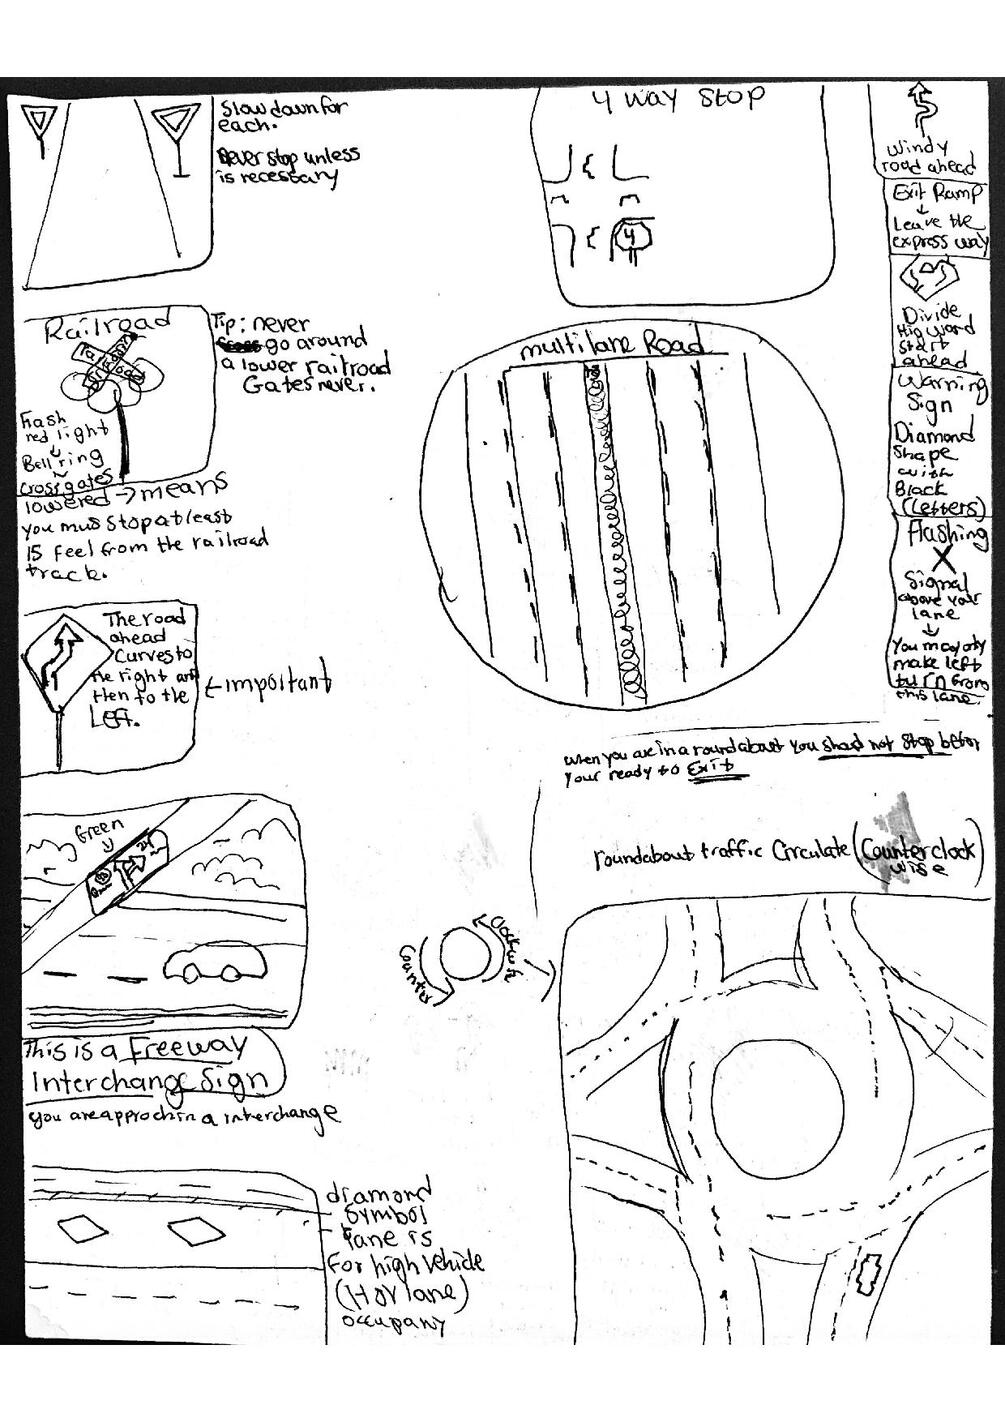 Slow down for
each.
Never stop unless
is necessary
4 way STOP
4
Windy
road ahead
Exit Ramp
Leave the
express way
Divide
start
ahead
Warning
Sign
Diamond
Shape
with
Black
(Letters)
Flashing
X
Signal
above your
lane
You may only
make left
turn from
this lane.
Railroad
Tip: never
go around
a lower railroad
Gates never.
Flash
red light
Bell ring
cross gates
lowered → means
you mus stop at least
15 feel from the railroad
track.
multilane Road
The road
ahead
Curves to
the right and
then to the
Left.
← important
when you are in a roundabout you shoud not stop befor
your ready to Exit
roundabout traffic Circulate (Counterclock
wise)
Green
Counter
Clockwise
This is a Freeway
Interchange Sign
you are approchin a interchange
diamond
Symbol
lane is
For high vehicle
(Hov lane)
occupany